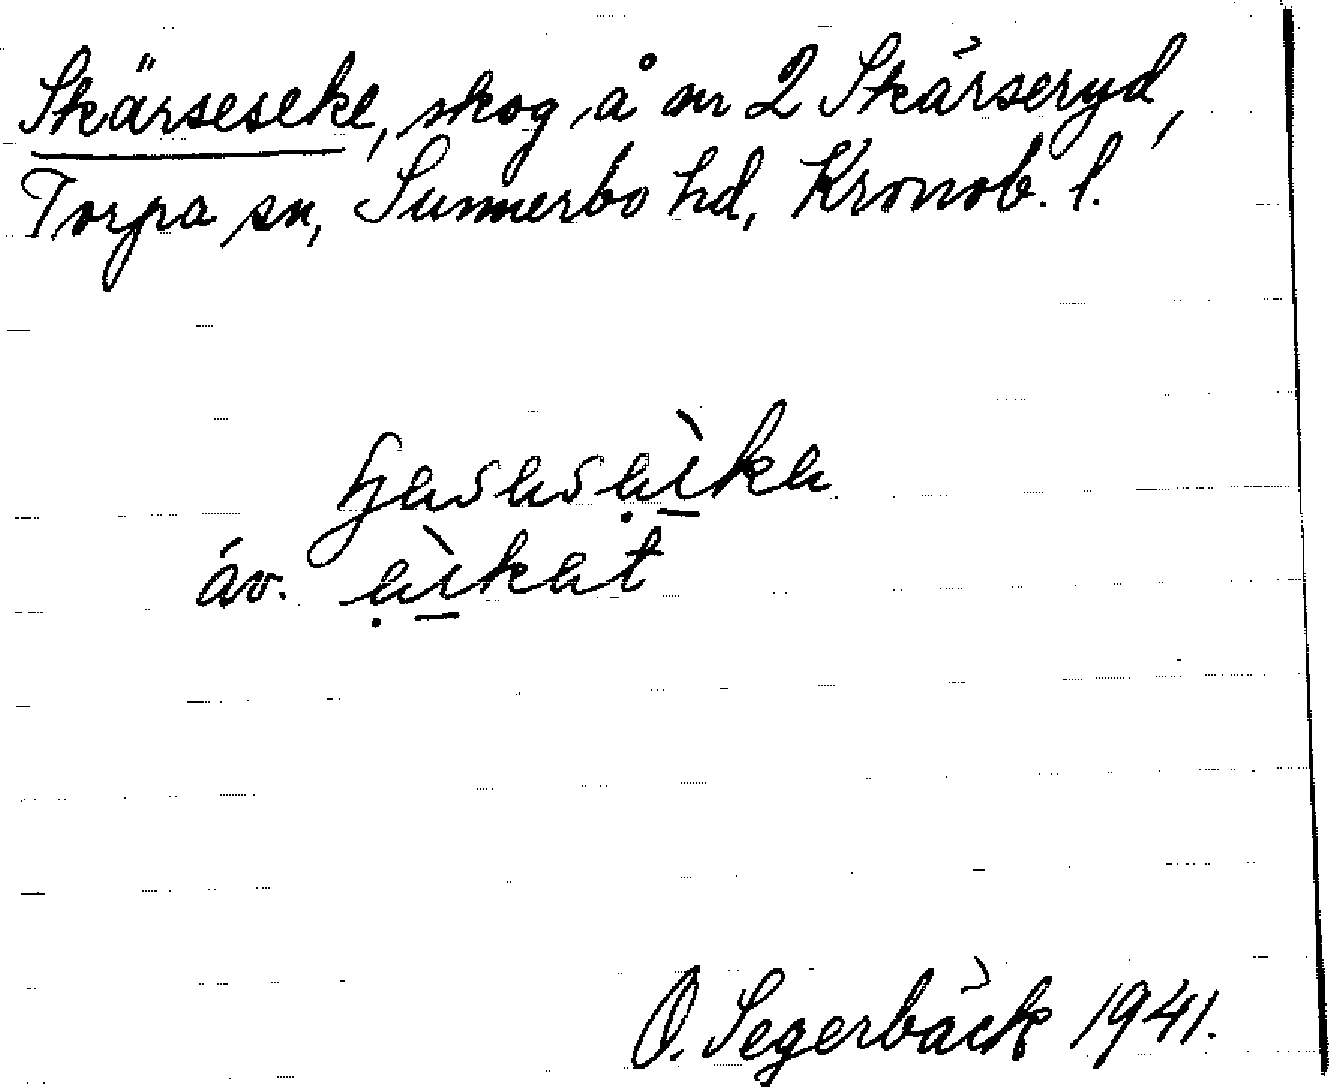 Skärseseke, skog å nr 2 Skärseryd,
Torpa sn, Sunnerbo hd, Kronob. l.
äv.
O. Segerbäck 1941.